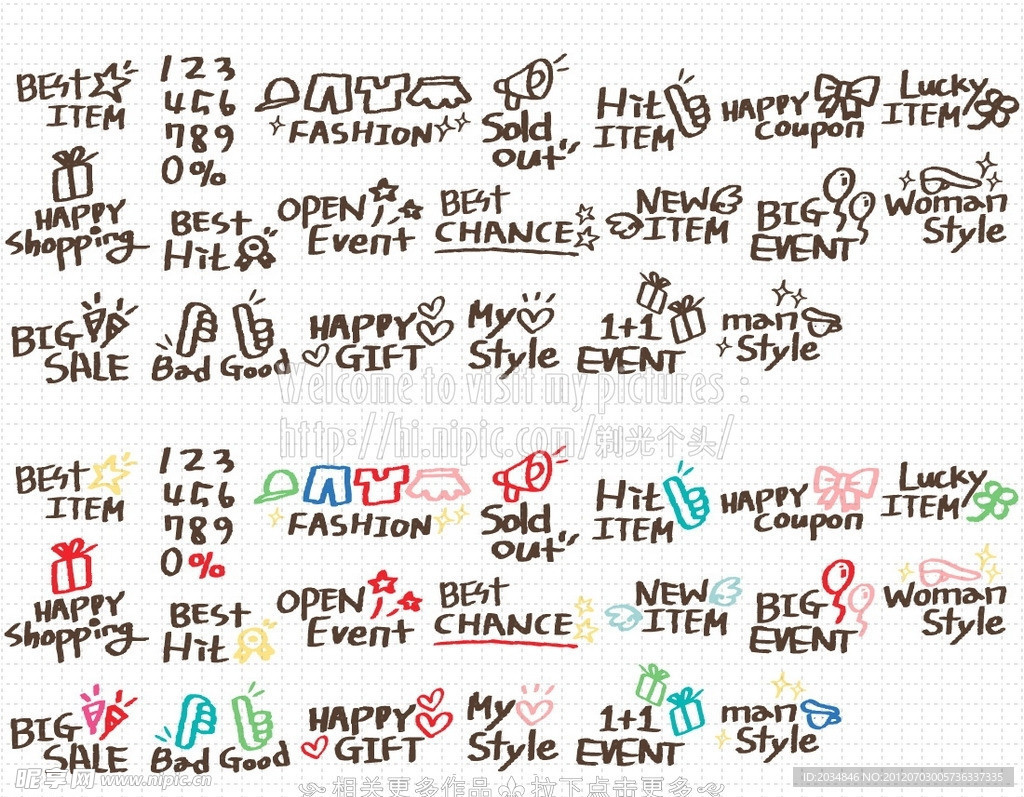 BEST
ITEM
1 2 3
4 5 6
7 8 9
0 %
FASHION
Sold
out
Hit
ITEM
HAPPY
coupon
Lucky
ITEM
HAPPY
shopping
BEST
Hit
OPEN
Event
BEST
CHANCE
NEW
ITEM
BIG
EVENT
Woman
Style
BIG
SALE
Bad Good
HAPPY
GIFT
My
Style
1+1
EVENT
man
Style
Welcome to visit my pictures :
http://hi.nipic.com/剃光个头/
BEST
ITEM
1 2 3
4 5 6
7 8 9
0 %
FASHION
Sold
out
Hit
ITEM
HAPPY
coupon
Lucky
ITEM
HAPPY
shopping
BEST
Hit
OPEN
Event
BEST
CHANCE
NEW
ITEM
BIG
EVENT
Woman
Style
BIG
SALE
Bad Good
HAPPY
GIFT
My
Style
1+1
EVENT
man
Style
昵享网 www.nipic.cn
相关更多作品 拉下点击更多
ID:2034846 NO:20120703005736337335